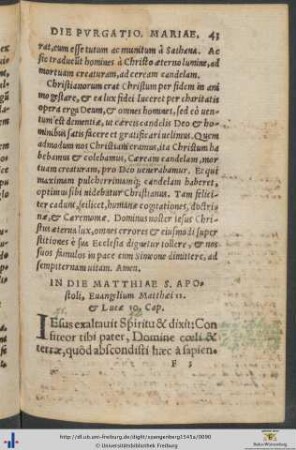 DIE PVRGATIO. MARIAE. 43
rat, eum esse tutum ac munitum à Sathana. Ac
sic traducūt homines à Christo æterno lumine, ad
mortuam creaturam, ad ceream candelam.
Christianorum erat Christum per fidem in ani
mo gestare, & ea lux fidei luceret per charitatis
opera erga Deum, & omnes homines, sed eò uen-
tum est dementiæ, ut cæreis candelis Deo & ho-
minibus satis facere et gratificari uelimus. Quem
admodum nos Christiani eramus, ita Christum ha
bebamus & colebamus, Cæream candelam, mor
tuam creaturam, pro Deo uenerabamur. Et qui
maximam pulcherrimamq́; candelam haberet,
optimus sibi uidebatur Christianus. Tam felici-
ter cadunt, scilicet, humanæ cogitationes, doctri-
næ, & Ceremoniæ. Dominus noster Iesus Chri-
stus æterna lux, omnes errores & eiusmodi super
stitiones è sua Ecclesia dignetur tollere, & nos
suos famulos in pace cum Simeone dimittere, ad
sempiternam uitam. Amen.
IN DIE MATTHIAE S. APO-
stoli, Euangelium Matthæi 11.
& Lucæ 10. Cap.
IEsus exaltauit Spiritu & dixit: Con
fiteor tibi pater, Domine cœli &
terræ, quòd abscondisti hæc à sapien-
F 3
http://dl.ub.uni-freiburg.de/diglit/spangenberg1545a/0090
© Universitätsbibliothek Freiburg